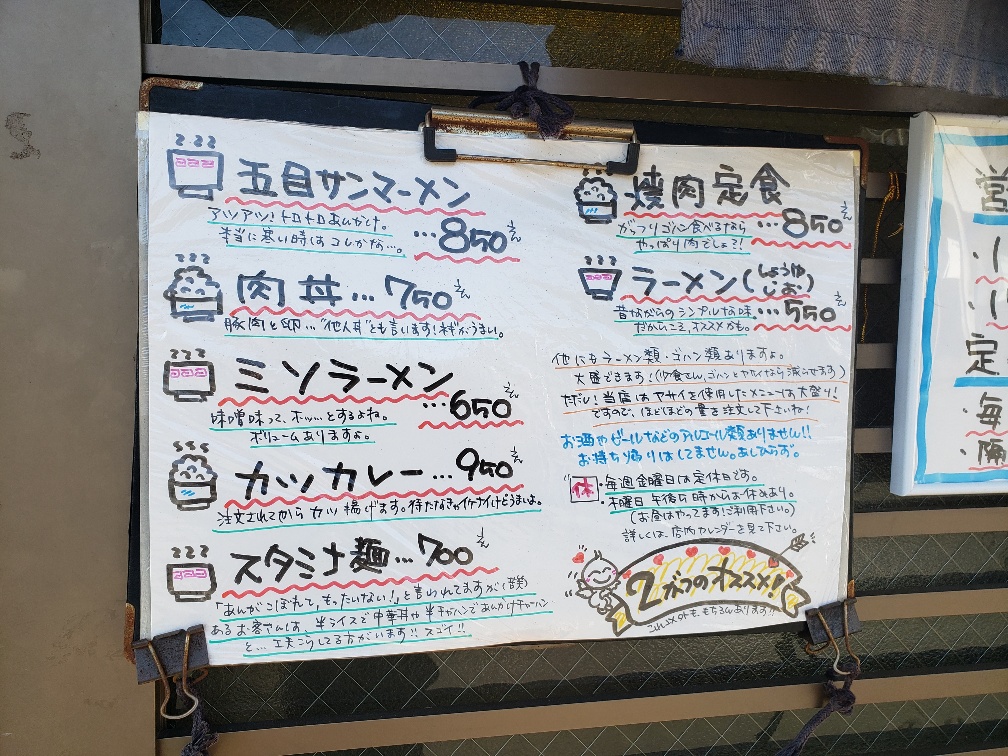 五目サンマーメン
アツアツ!トロトロあんかけ。
本当に寒い時はコレかな…。
…850えん
肉丼…750えん
豚肉と卵…"他人丼"とも言います!ネギがうまい。
ミソラーメン
味噌味って、ホッ…とするよね。
ボリュームありますよ。
…650えん
カツカレー…950えん
注文されてからカツ揚げます。待たなきゃイケナイけどうまいよ。
スタミナ麺…700えん
「あんがこぼれて、もったいない!」と言われてますが(苦笑)
あるお客さんは、半ライスで中華丼や半チャーハンであんかけチャーハン
と…工夫こらしてる方がいます!!スゴイ!!
焼肉定食
がっつりゴハン食べるなら
やっぱり肉でしょ?!
…850えん
ラーメン(しょうゆ
しお)
昔ながらのシンプルな味
だからこそ、オススメかも。
…550えん
他にもラーメン類・ゴハン類ありますよ。
大盛できます!(少食さん、ゴハンとヤサイなら減らせます)
ただし!当店はヤサイを使用したメニューは大盛り!
ですので、ほどほどの量を注文して下さいね!
お酒やビールなどのアルコール類ありません!!
お持ち帰りはしてません。あしからず。
休・毎週金曜日は定休日です。
木曜日午後5時からお休みあり。
(お昼はやってます!ご利用下さい。)
詳しくは、店内カレンダーを見て下さい。
2かつのオススメ!
これ以外も、もちろんあります!!
営
・定
・毎